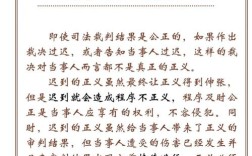 即使司法裁判结果是公正的，如果作出
裁决过迟，或者告知当事人过迟，这样的裁
决对当事人而言都不是真正的正义。
迟到的正义虽然最终让正义得到伸张，
但是迟到就会造成程序不正义，程序及时公
正是当事人应享有的权利，不容侵犯。同
时，迟到的正义虽然给当事人带来了正义的
审判结果，但当事人遭受的伤害已经发生并